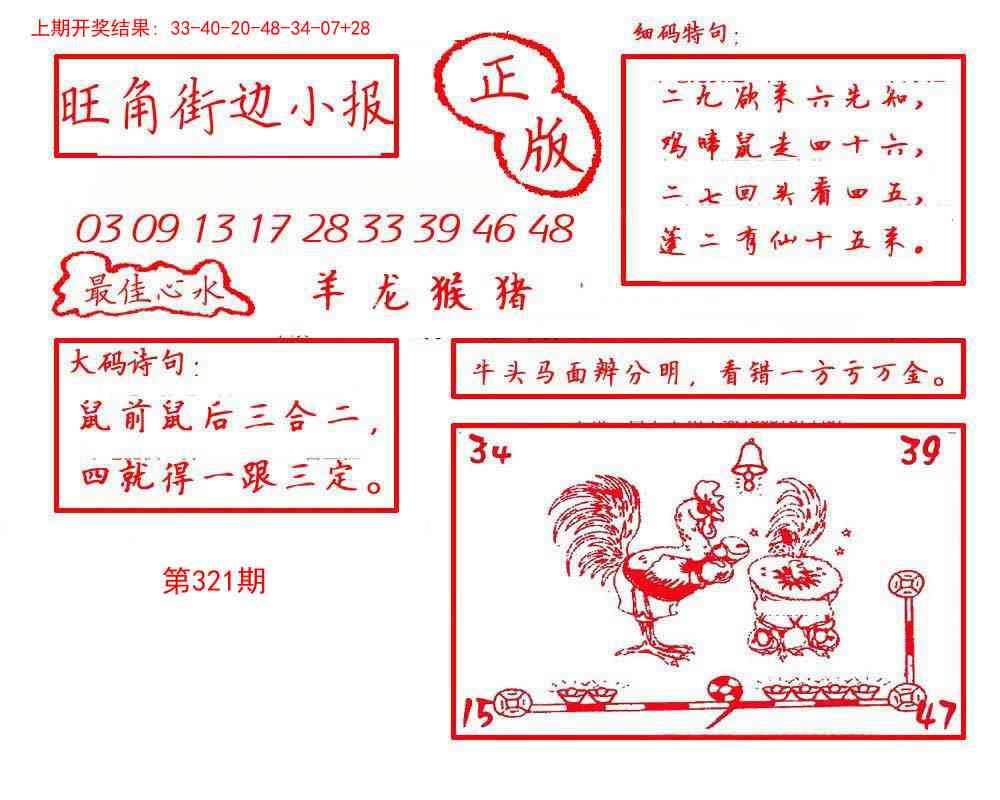 上期开奖结果：33-40-20-48-34-07+28
细码特句：
旺角街边小报
正版
二九欲来六先知，
鸡啼鼠走四十六，
二七回头看四五，
蓬二有仙十五来。
03 09 13 17 28 33 39 46 48
最佳心水
羊龙猴猪
大码诗句：
鼠前鼠后三合二，
四就得一跟三定。
牛头马面辨分明，看错一方亏万金。
34
39
8
第321期
15
9
47